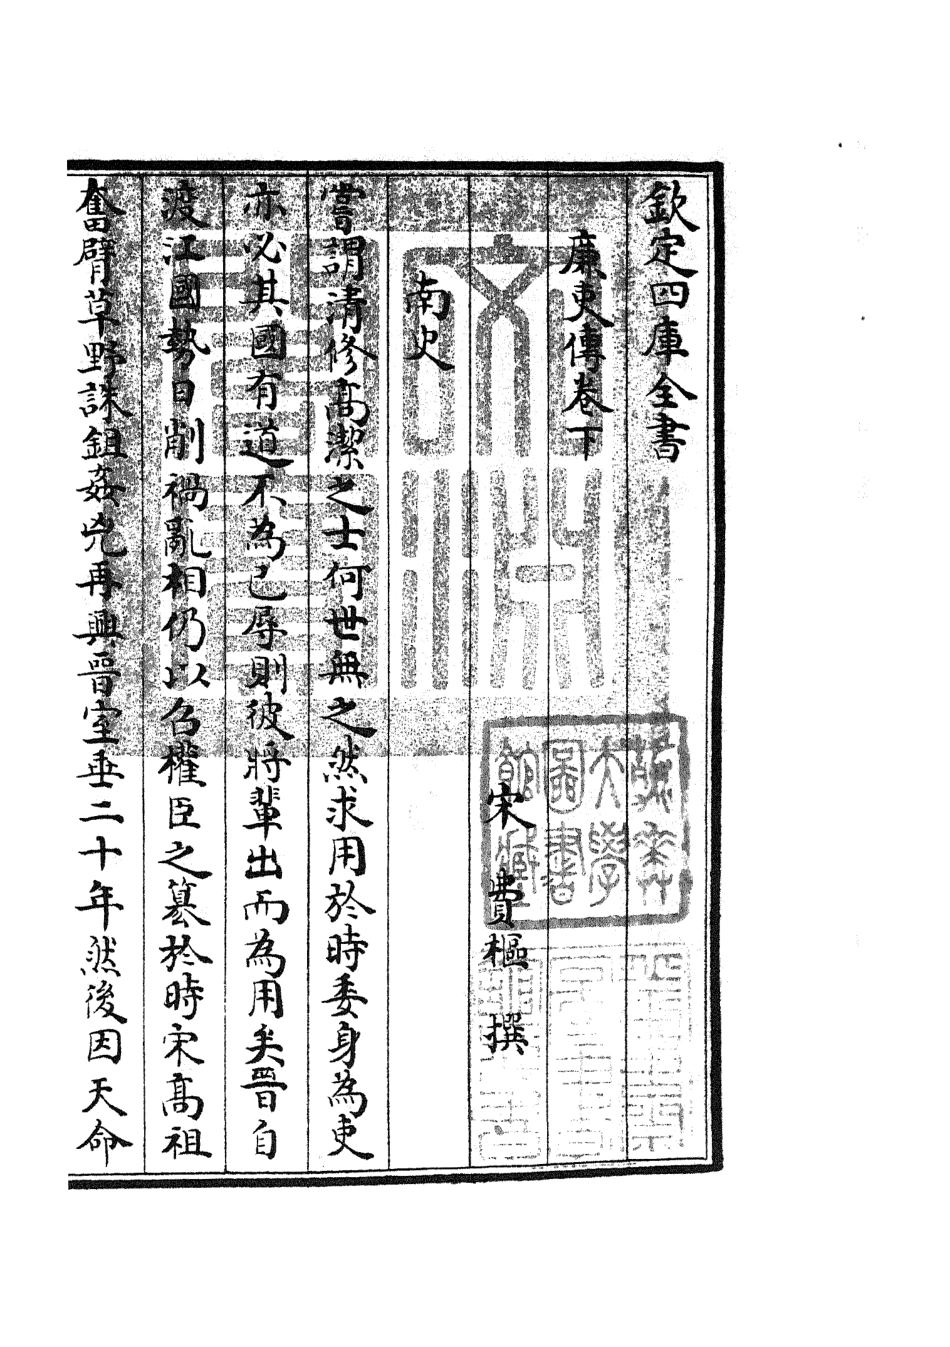 欽定四庫全書
廉吏傳卷下
宋 費樞 撰
南史
嘗謂清修髙潔之士何世無之然求用於時委身為吏
亦必其國有道不為已辱則彼將輩出而為用矣晉自
渡江國勢日削禍亂相仍以召權臣之簒於時宋髙祖
奮臂草野誅鉏姦兇再興晉室垂二十年然後因天命